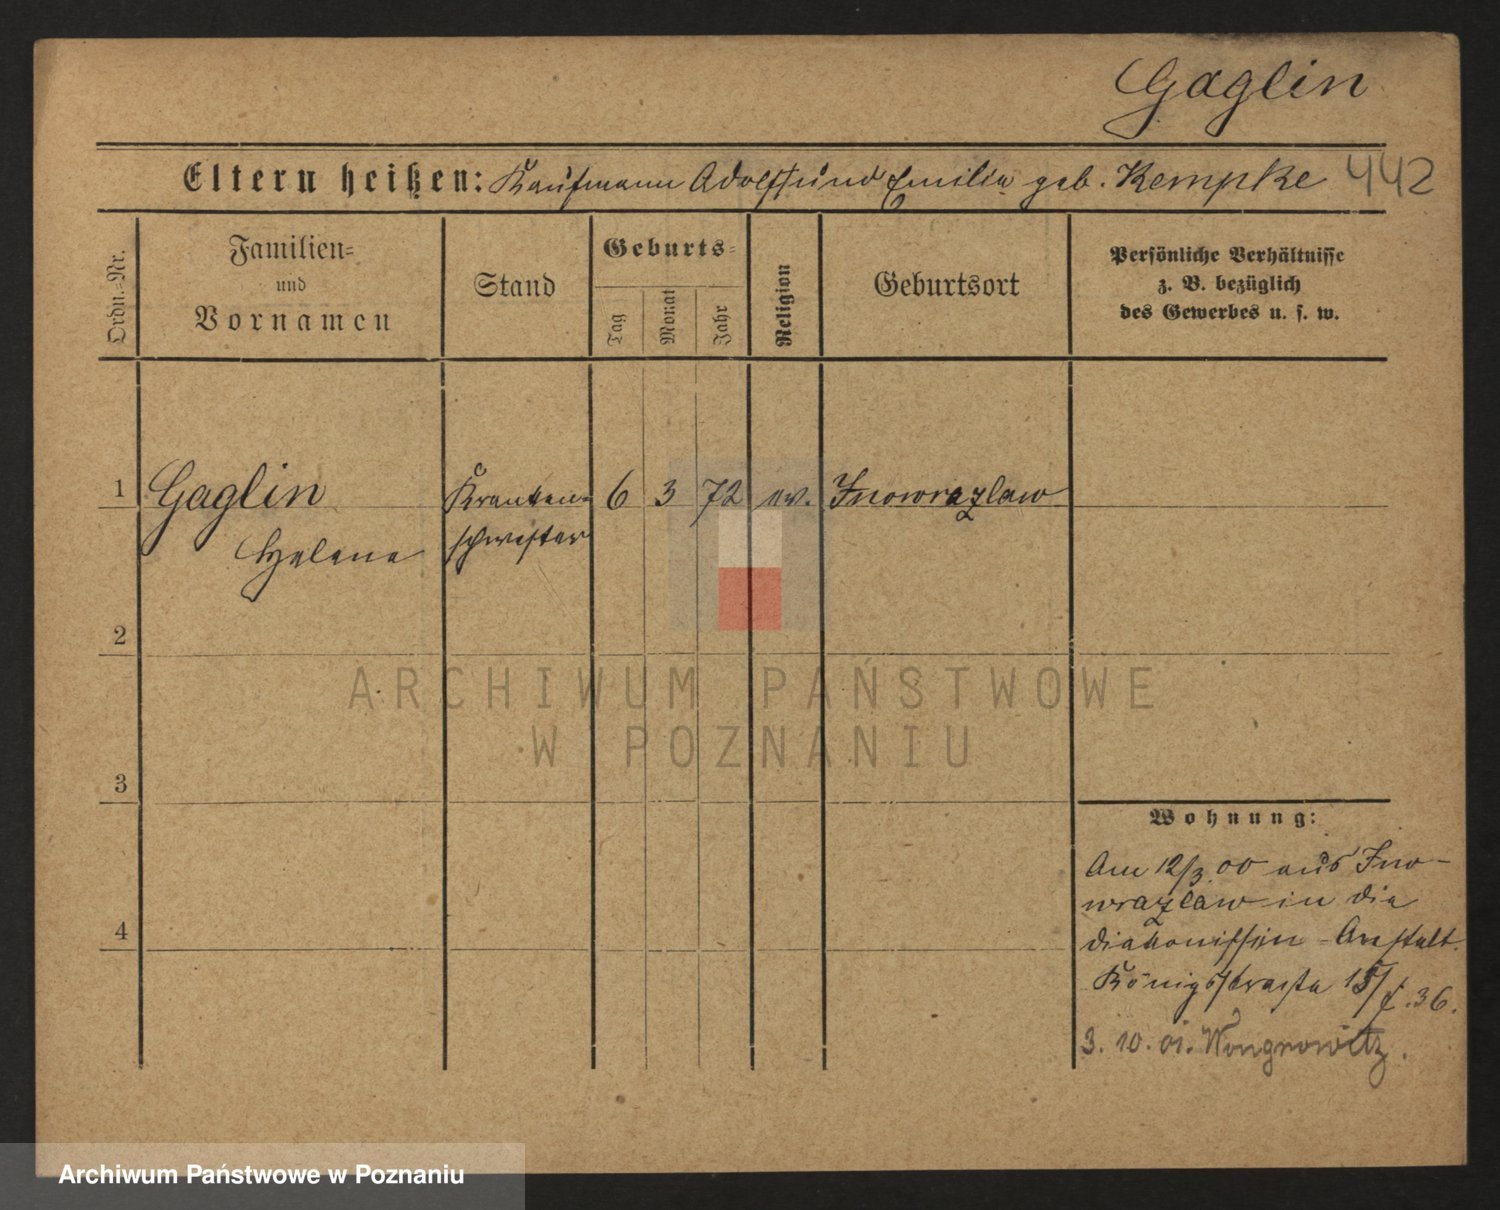 Gaglin
Eltern heißen: Kaufmann Adolf und Emilie geb. Kempke 442
Ordn.-Nr.
Familien-
und
Vornamen
Stand
Geburts-
Tag
Monat
Jahr
Religion
Geburtsort
Persönliche Verhältnisse
z. B. bezüglich
des Gewerbes u. s. w.
1 Gaglin Kranken- 6 3 72 ev. Inowrazlaw
Helene schwester
2
3
4
Wohnung:
Am 12/3.00 aus Ino-
wrazlaw in die
Diakonissen-Anstalt.
Königsstraße 15/
3.10.01. Wongrowitz.
ARCHIWUM PAŃSTWOWE
W POZNANIU
Archiwum Państwowe w Poznaniu